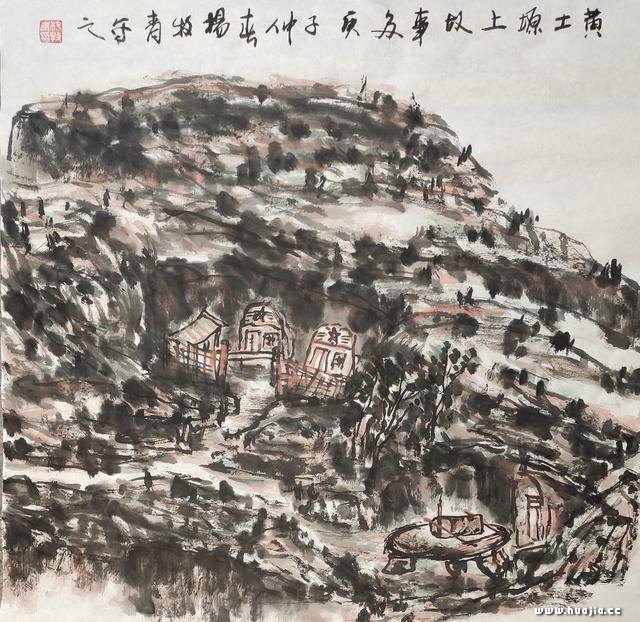 黄土塬上故事多庚子仲春楊牧青写之
www.huajia.cc